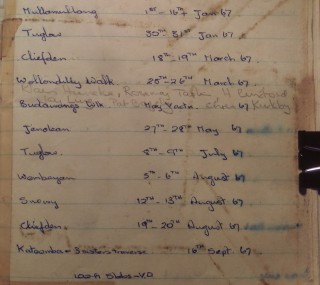 Mullamullang 1ST - 16TH Jan 67
Tuglow 30TH 31ST Jan 67
Cliefden 18TH - 19TH March 67
Wollondilly Walk 20TH - 26TH March 67
Budawangs Walk May Vacta Chris Kirkby
Jenolan 27TH - 28TH May 67
Tuglow 8TH - 9TH July 67
Wombeyan 5TH - 6TH August 67
Snowy 12TH - 13TH August 67
Cliefden 19TH - 20TH August 67
Katoomba - 3 sisters traverse 16TH Sept 67